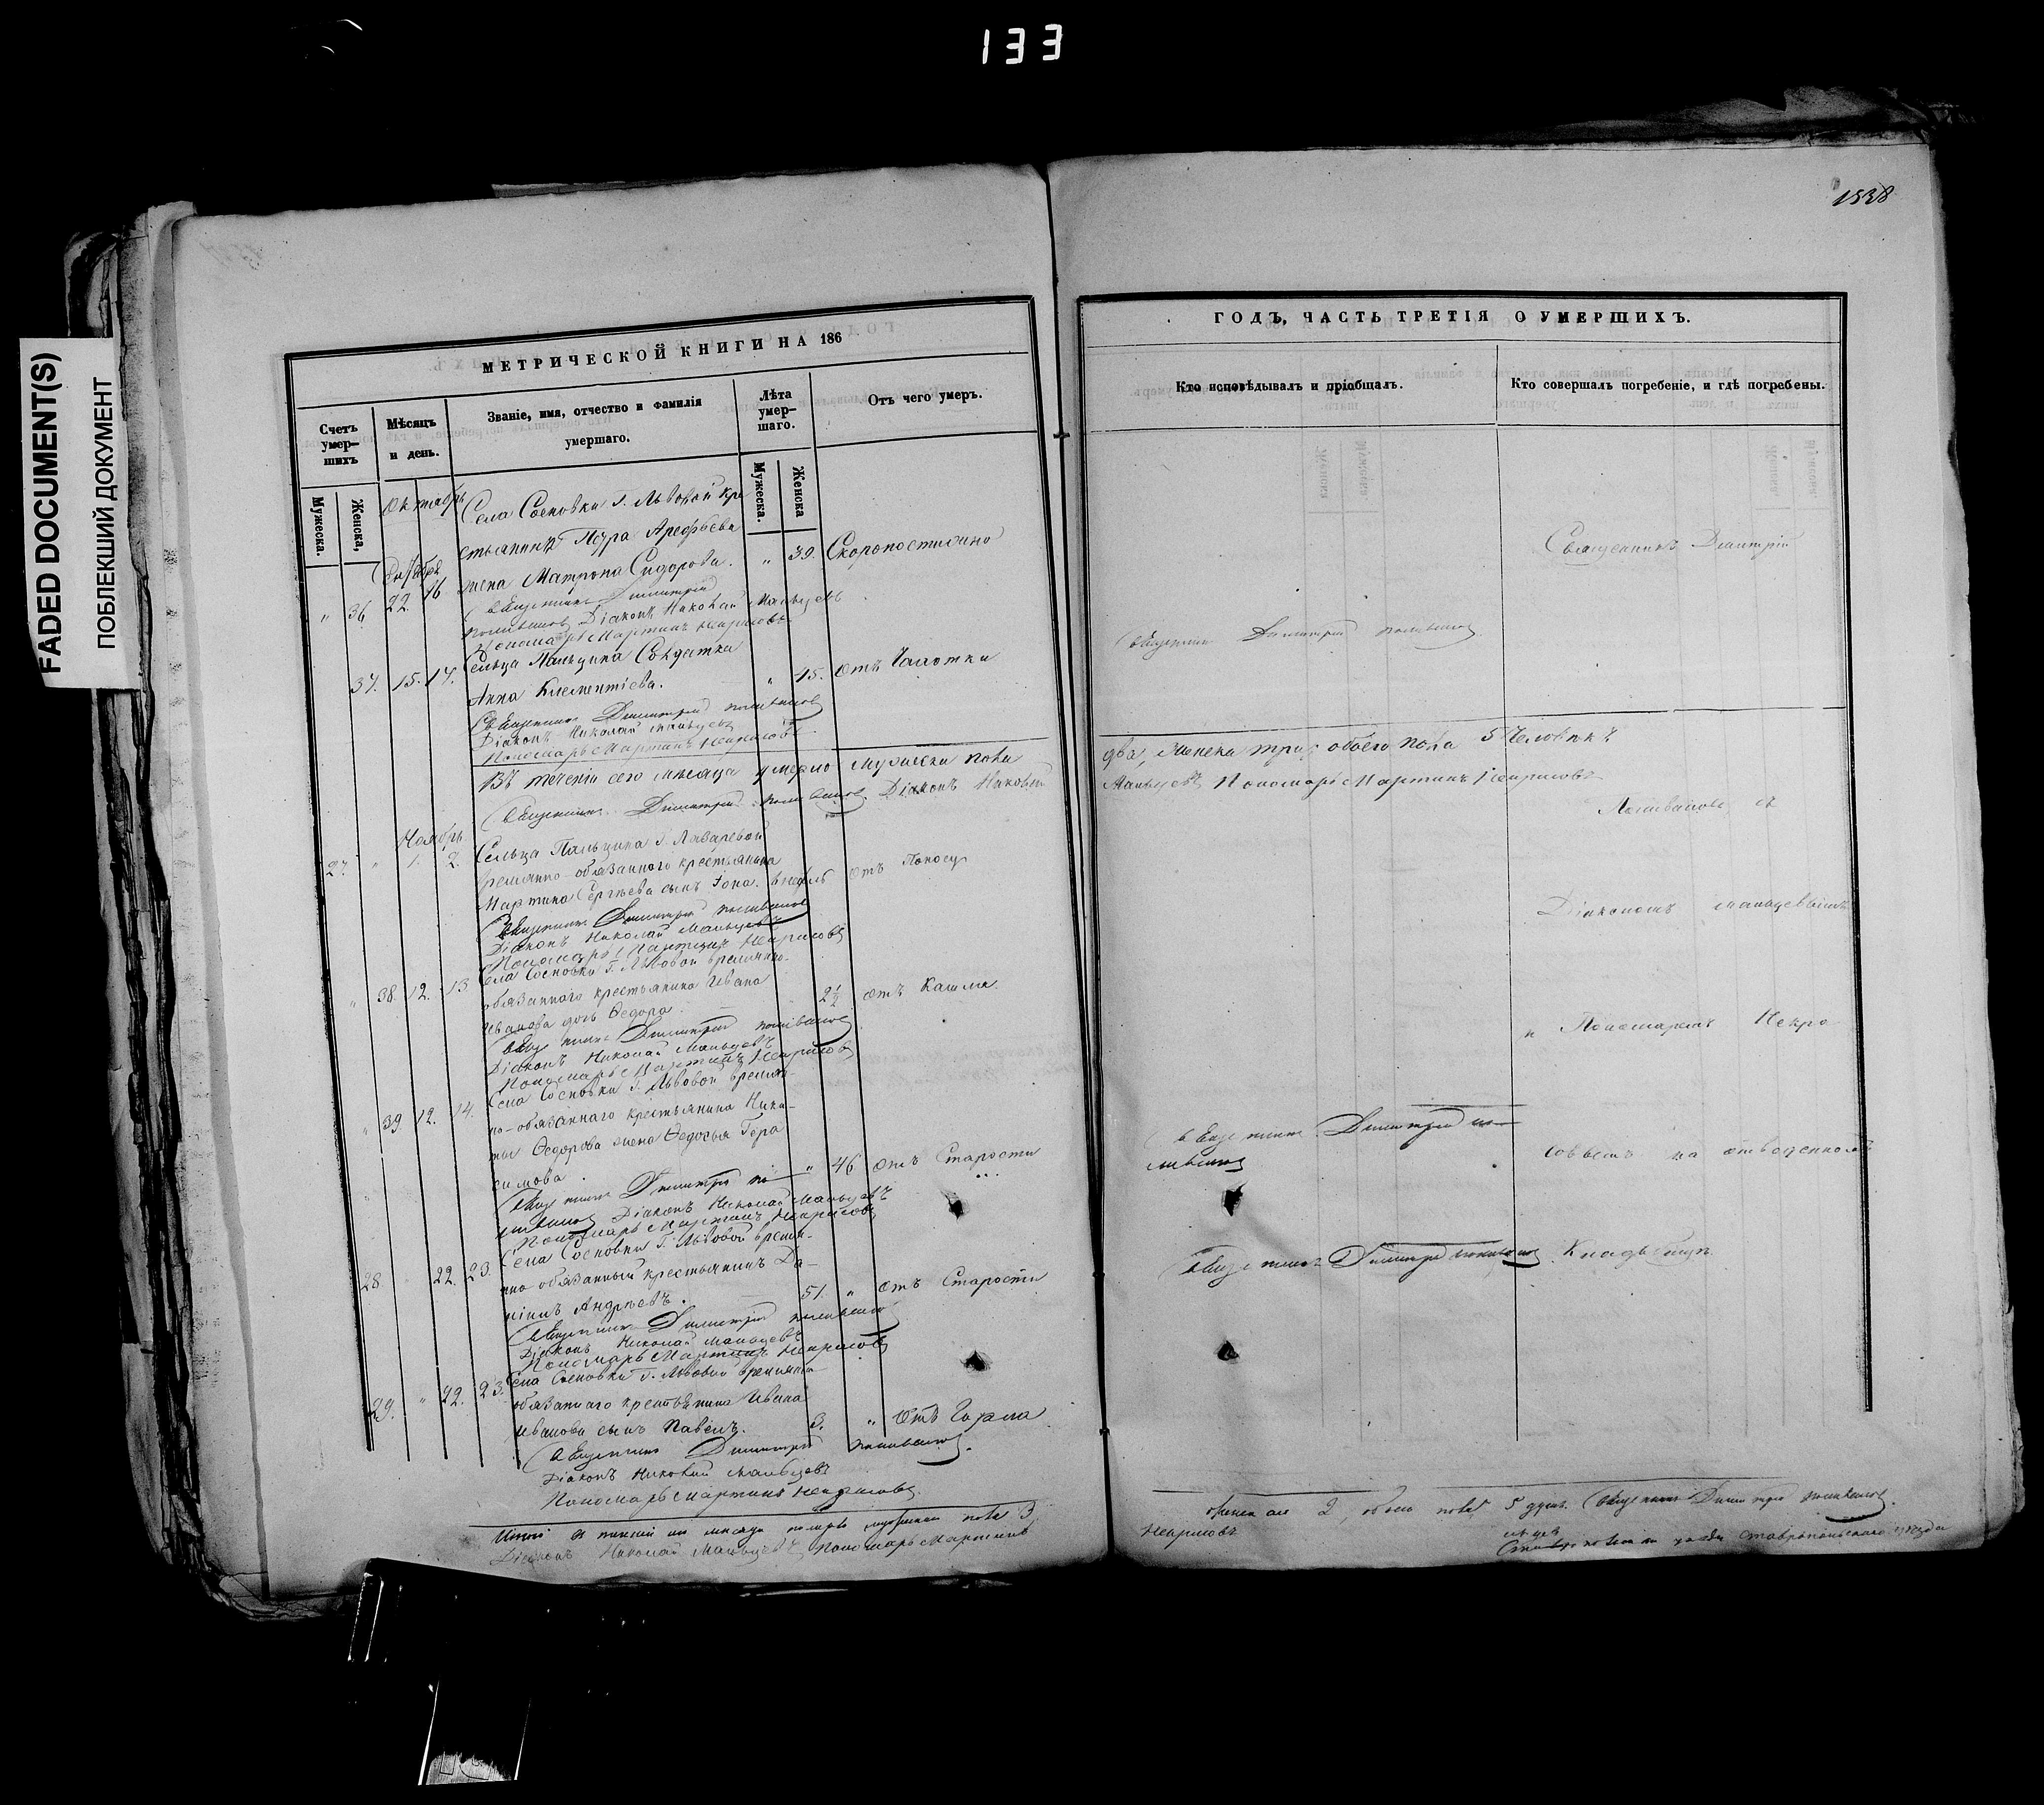 133
1538
FADED DOCUMENT(S)
ПОБЛЕКШИЙ ДОКУМЕНТ
МЕТРИЧЕСКОЙ КНИГИ НА 186
Счетъ умер–шихъ
Мѣсяцъ и день.
Званіе, имя, отчество и фамилія умершаго.
Лѣта умер–шаго.
Отъ чего умеръ.
Мужеска.
Женска,
Мужеска.
Женска
Октябрь
Села Сосновки г. Львовой кре
стьянина Петра Арефьева
36 22. 16. жена Матрона Сидорова. " 39. Скоропостижно
Священникъ Димитрій
Діаконъ Николай Мальцевъ
Пономарь Мартинъ Некрасовъ
37. 15. 17. Сельца Пальцина Солдатка
Анна Клементіева. " 45. Отъ Чахотки
Священникъ Димитрій
Діаконъ Николай Мальцевъ
Пономарь Мартинъ Некрасовъ
Въ теченіи сего мѣсяца умерло мужеска пола
Священникъ Димитрій Діаконъ Николай
Ноябрь
27. " 1. 2. Сельца Пальцина г. Лазаревой
временно-обязаннаго крестьянина
Мартина Сергѣева сынъ Іона. отъ Поносу
Священникъ Димитрій
Діаконъ Николай Мальцевъ
Пономарь Мартинъ Некрасовъ
" 38. 12. 13. Села Сосновки г. Львовой временно-
обязаннаго крестьянина Ивана
Иванова дочь Ѳедора. 2½ отъ Кашля
Священникъ Димитрій
Діаконъ Николай Мальцевъ
Пономарь Мартинъ Некрасовъ
" 39 12. 14. Села Сосновки г. Львовой времен
но-обязаннаго крестьянина Ники-
ты Ѳедорова жена Ѳедосья Гера
симова. " 46 отъ Старости
Священникъ Димитрій
Діаконъ Николай Мальцевъ
Пономарь Мартинъ Некрасовъ
28 22. 23. Села Сосновки г. Львовой времен-
но обязанный крестьянинъ Да-
ніилъ Андреевъ. 51. " отъ Старости
Священникъ Димитрій
Діаконъ Николай Мальцевъ
Пономарь Мартинъ Некрасовъ
29. " 22. 23. Села Сосновки г. Львовой временно
обязаннаго крестьянина Ивана
Иванова сынъ Павелъ. 3. " Отъ Горла
Священникъ Димитрій
Діаконъ Николай Мальцевъ
Пономарь Мартинъ Некрасовъ
мужеска пола 3
Діаконъ Николай Мальцевъ Пономарь Мартинъ
ГОДЪ, ЧАСТЬ ТРЕТІЯ О УМЕРШИХЪ.
Кто исповѣдывалъ и пріобщалъ.
Кто совершалъ погребеніе, и гдѣ погребены.
Священникъ Димитрій
Священникъ Димитрій
два, женска три; обоего пола 5 Человѣкъ
Мальцевъ Пономарь Мартинъ Некрасовъ
съ
Діакономъ Мальцевымъ
и Пономаремъ Некра
Священникъ Димитрій
совымъ на отведенномъ
Священникъ Димитрій
Кладбищѣ.
женска 2, обоего пола 5 душъ. Священникъ Димитрій
Некрасовъ
Ставропольскаго уѣзда